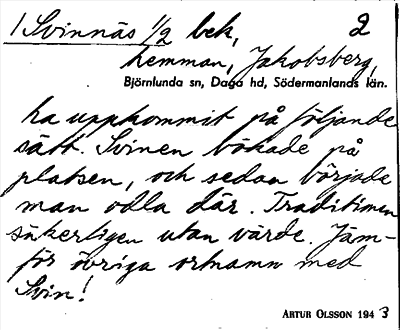 1 Svinnäs 1/2 bek, 2
hemman, Jakobsberg,
Björnlunda sn, Daga hd, Södermanlands län.
ha uppkommit på följande
sätt. Svinen bökade på
platsen, och sedan började
man odla där. Traditionen
säkerligen utan värde. Jäm-
för övriga ortnamn med
Svin!
ARTUR OLSSON 1943